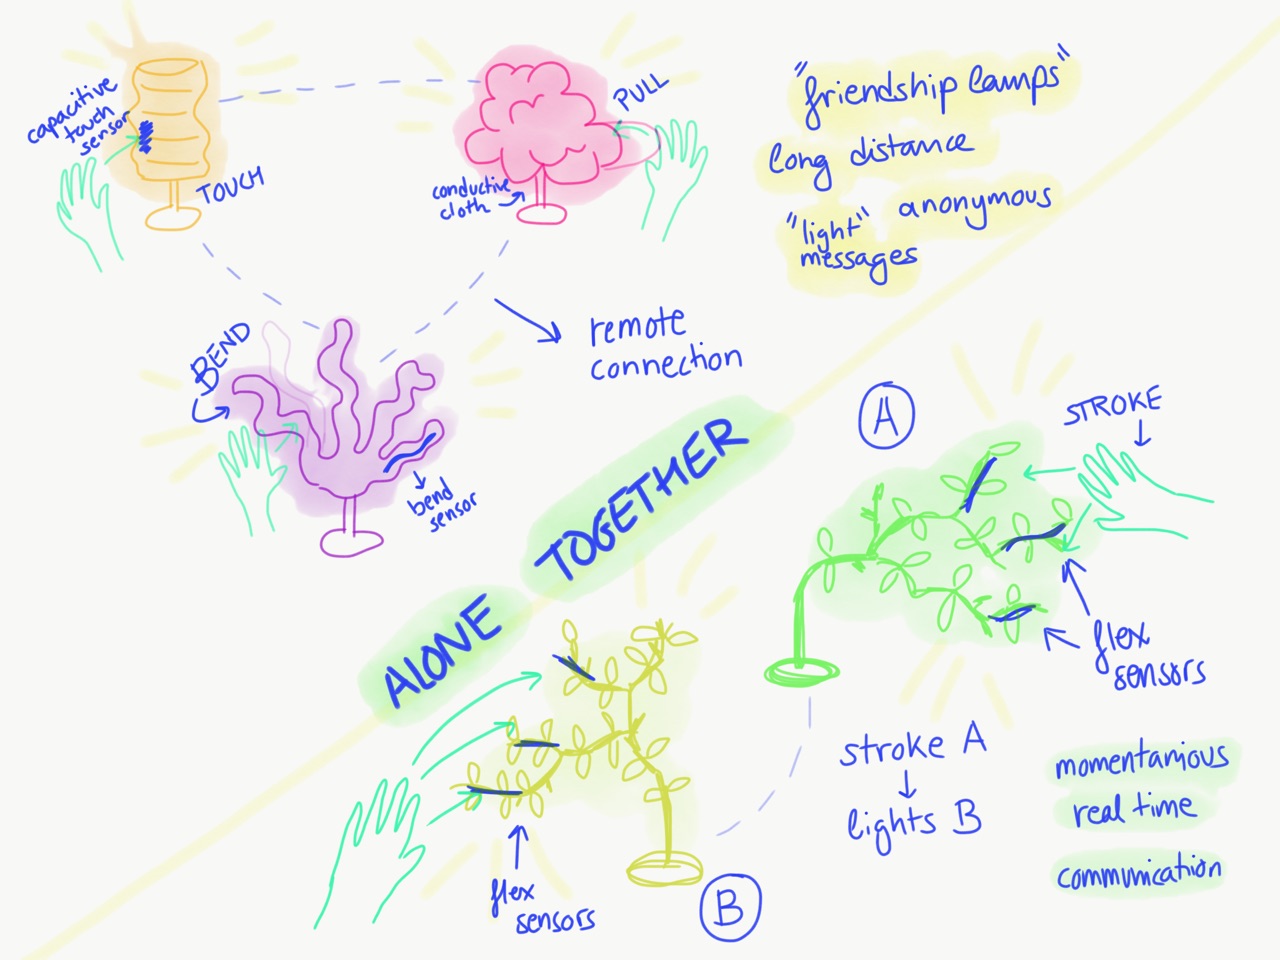 capacitive
touch
sensor
TOUCH
PULL
conductive
cloth
"friendship lamps"
long distance
anonymous
"light"
messages
BEND
bend
sensor
remote
connection
ALONE
TOGETHER
A
STROKE
flex
sensors
stroke A
lights B
momentanious
real time
communication
flex
sensors
B